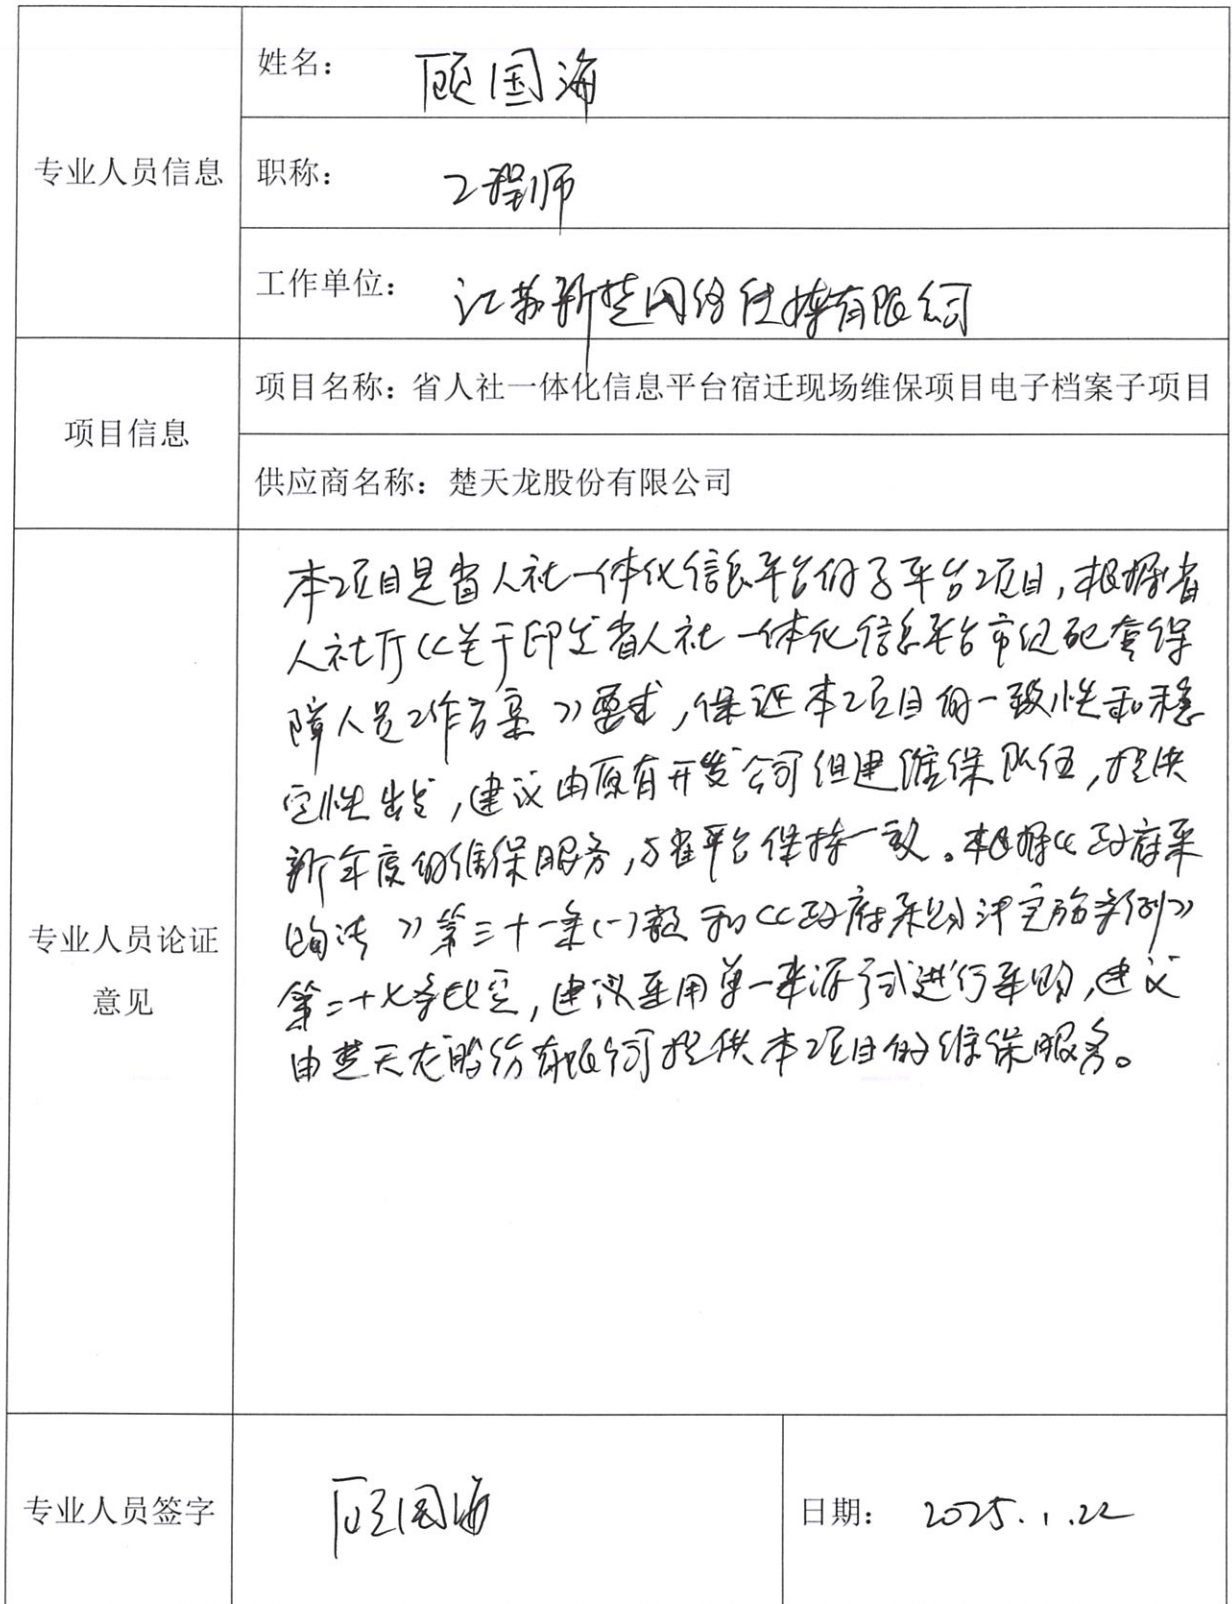 姓名： 顾国海
专业人员信息
职称： 工程师
工作单位： 江苏新楚网络传媒有限公司
项目信息
项目名称：省人社一体化信息平台宿迁现场维保项目电子档案子项目
供应商名称：楚天龙股份有限公司
专业人员论证
意见
本项目是省人社一体化信息平台的子平台项目,根据省
人社厅《关于印发省人社一体化信息平台市级配套保
障人员工作方案》要求,保证本项目的一致性和稳
定性出发,建议由原有开发公司组建维保队伍,提供
新年度的维保服务,与省平台保持一致。根据《政府采
购法》第三十一条(一)款和《政府采购法实施条例》
第二十七条规定,建议采用单一来源方式进行采购,建议
由楚天龙股份有限公司提供本项目的维保服务。
专业人员签字
顾国海
日期： 2025.1.22